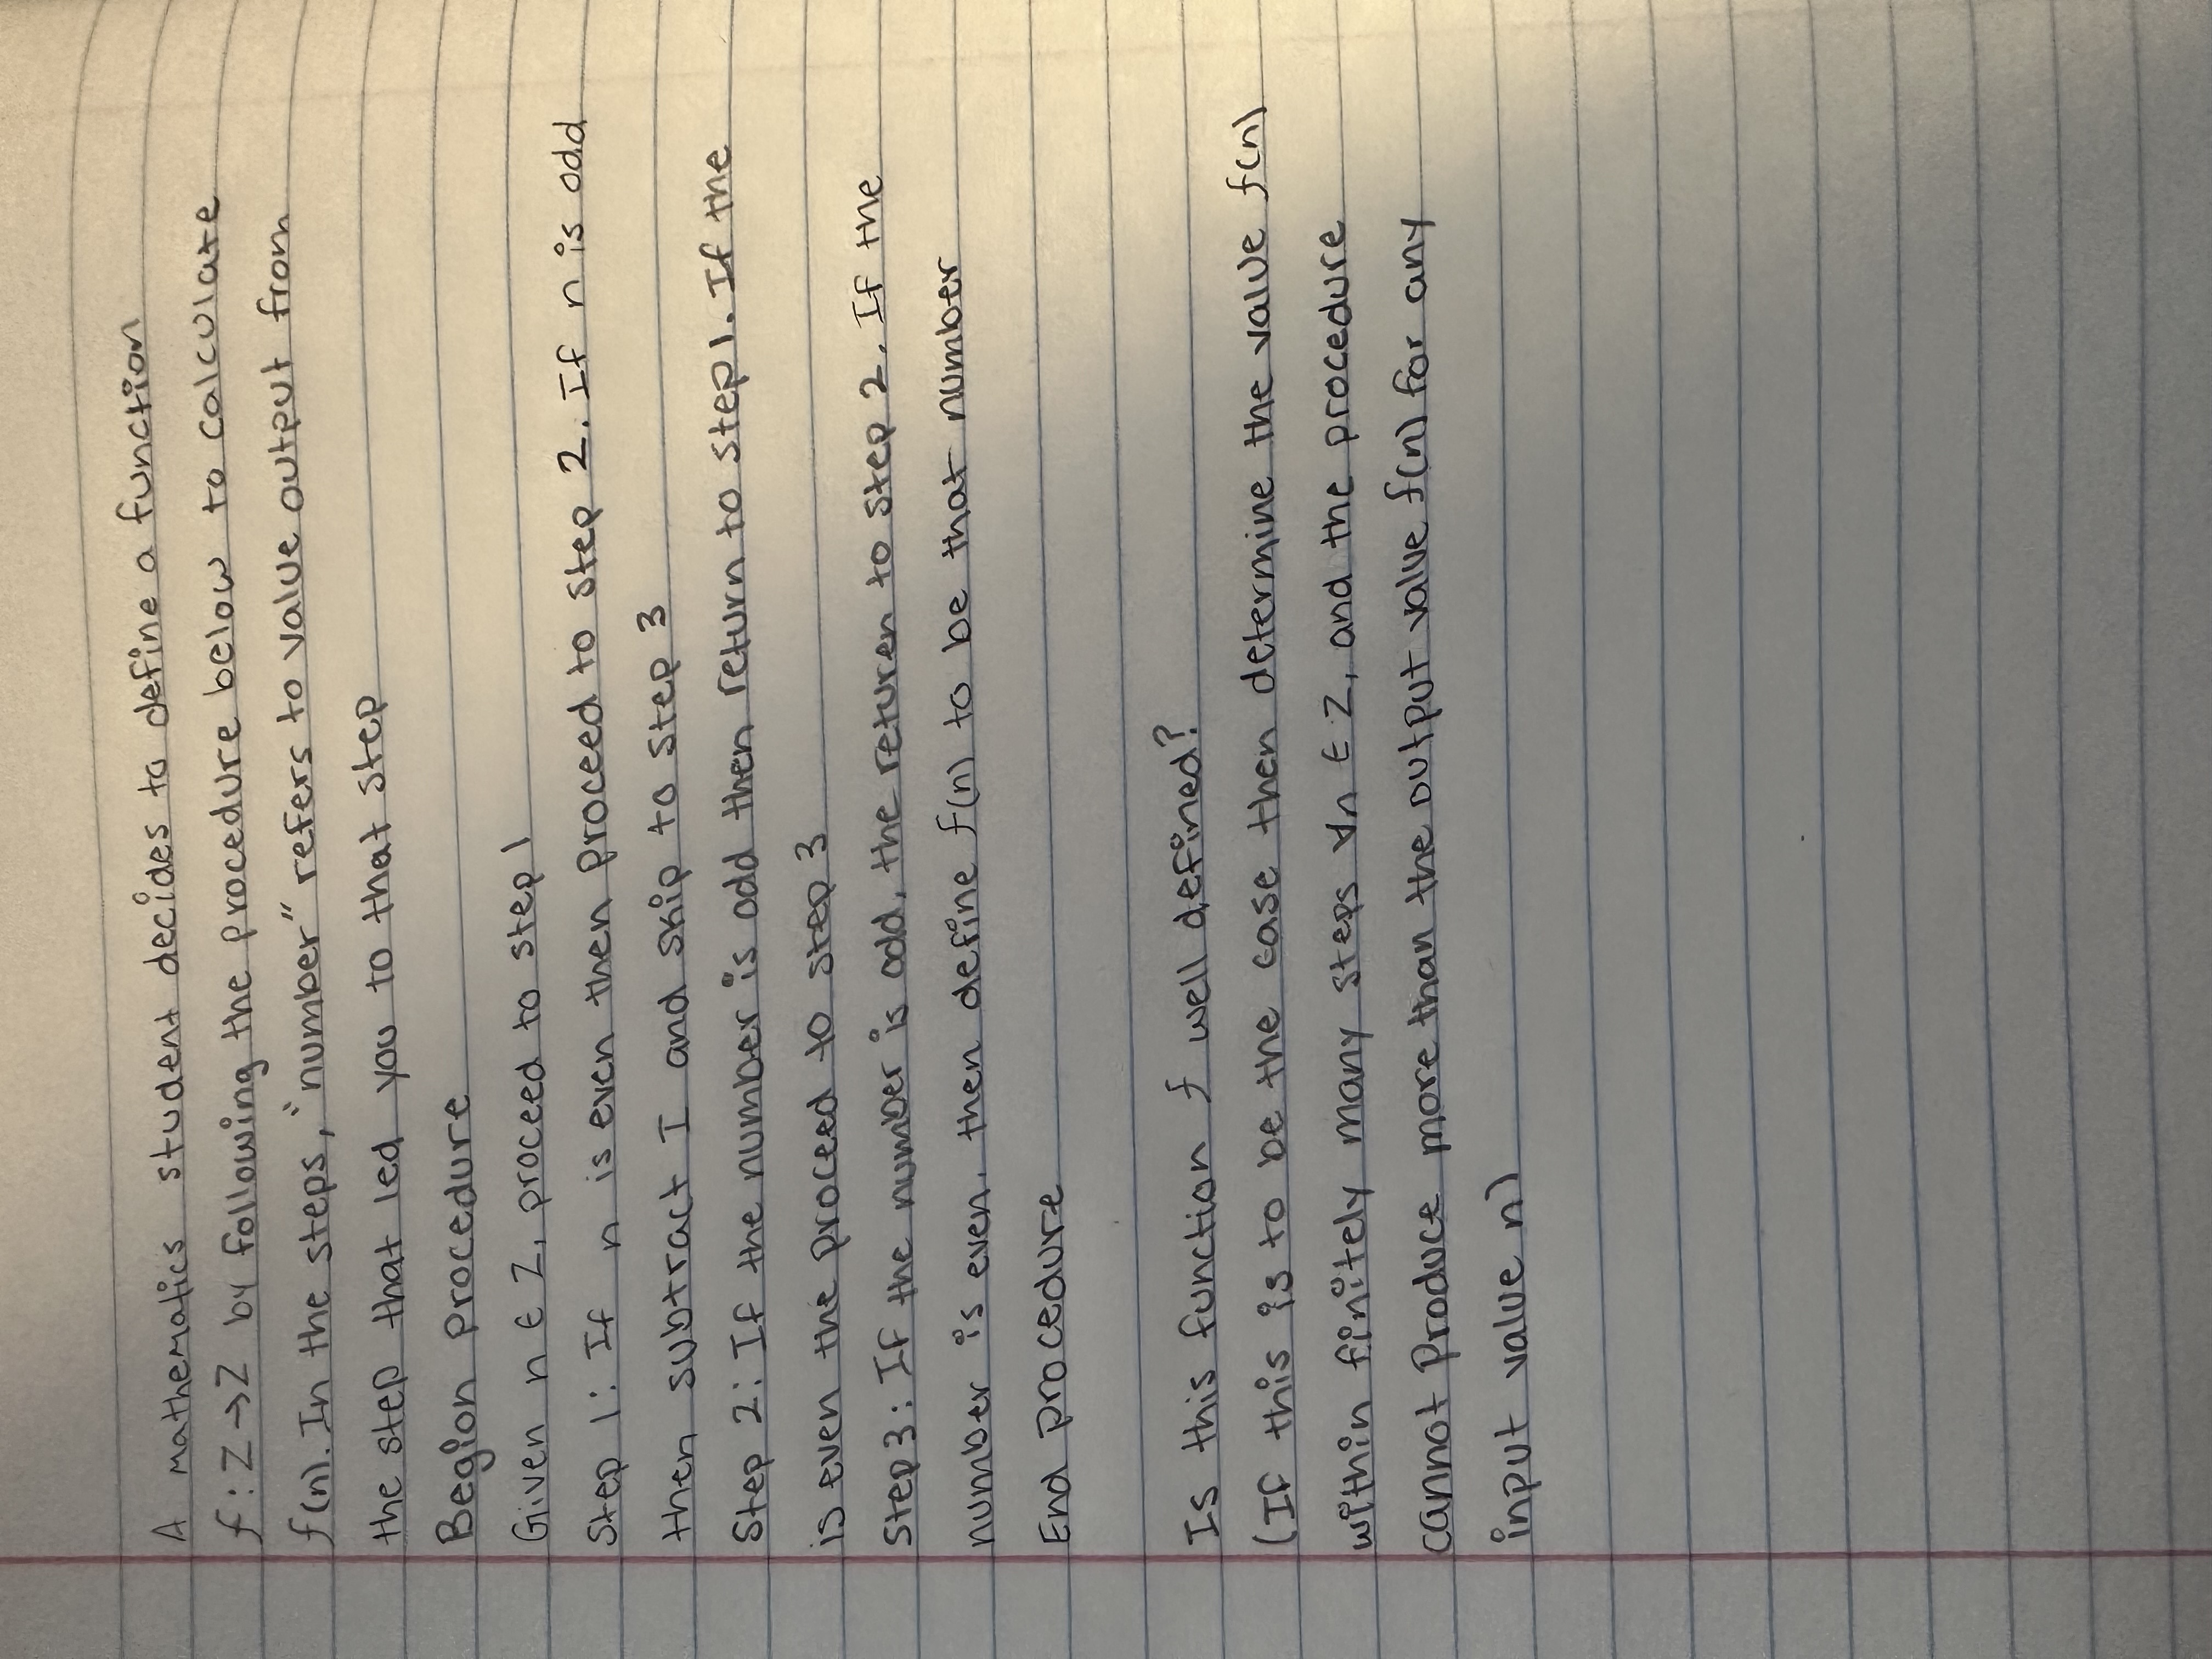 A mathematics student decides to define a function
f : Z → Z by following the procedure below to calculate
f(n). In the steps, "number" refers to value output from
the step that led you to that step
Begion procedure
Given n ∈ Z, proceed to step 1
Step 1: If n is even then proceed to step 2. If n is odd
then subtract 1 and skip to step 3
Step 2: If the number is odd then return to step 1. If the
is even the proceed to step 3
Step 3: If the number is odd, the returen to step 2. If the
number is even, then define f(n) to be that number
End procedure
Is this function f well defined?
(If this is to be the case then determine the value f(n)
within finitely many steps ∀n ∈ Z, and the procedure
cannot produce more than the output value f(n) for any
input value n)